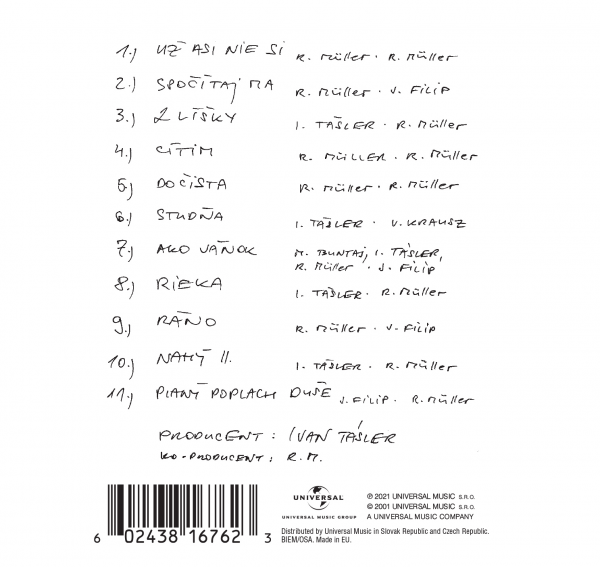 1.) UŽ ASI NIE SI R. Müller · R. Müller
2.) SPOČÍTAJ MA R. Müller · J. FILIP
3.) 2 LÍŠKY I. TÁSLER · R. Müller
4.) CÍTIM R. MÜLLER · R. Müller
5.) DOČISTA R. Müller · R. Müller
6.) STUDŇA I. TÁSLER · V. KRAUSZ
7.) AKO VÁNOK M. BUNTAJ, I. TÁSLER,
R. Müller · J. FILIP
8.) RIEKA I. TÁSLER · R. Müller
9.) RÁNO R. Müller · J. FILIP
10.) NAHÝ II. I. TÁSLER · R. Müller
11.) PLANÝ POPLACH DUŠE J. FILIP · R. Müller
PRODUCENT : IVAN TÁSLER
KO-PRODUCENT : R.M.
UNIVERSAL
UNIVERSAL MUSIC GROUP
℗ 2021 UNIVERSAL MUSIC S.R.O.
© 2001 UNIVERSAL MUSIC S.R.O.
A UNIVERSAL MUSIC COMPANY
Distributed by Universal Music in Slovak Republic and Czech Republic.
BIEM/OSA. Made in EU.
6 02438 16762 3